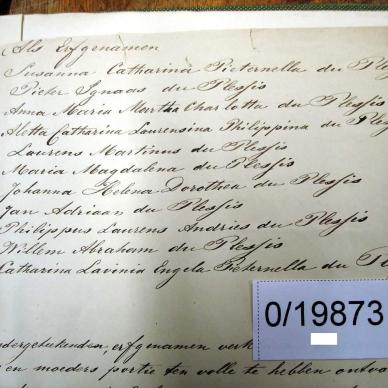 Als Erfgenamen
Susanna Catharina Pieternella du Ples
Pieter Ignaas du Plessis
Anna Maria Martha Charlotta du Plessis
Aletta Catharina Laurensina Philippina du Ples
Laurens Martinus du Plessis
Maria Magdalena du Plessis
Johanna Helena Dorothea du Plessis
Jan Adriaan du Plessis
Philippus Laurens Andries du Plessis
Willem Abraham du Plessis
Catharina Lavinia Engela Pieternella du Ple
0/19873
ndergetekenden, erfgenamen verk
en moeders portie ten volle te hebben ontva